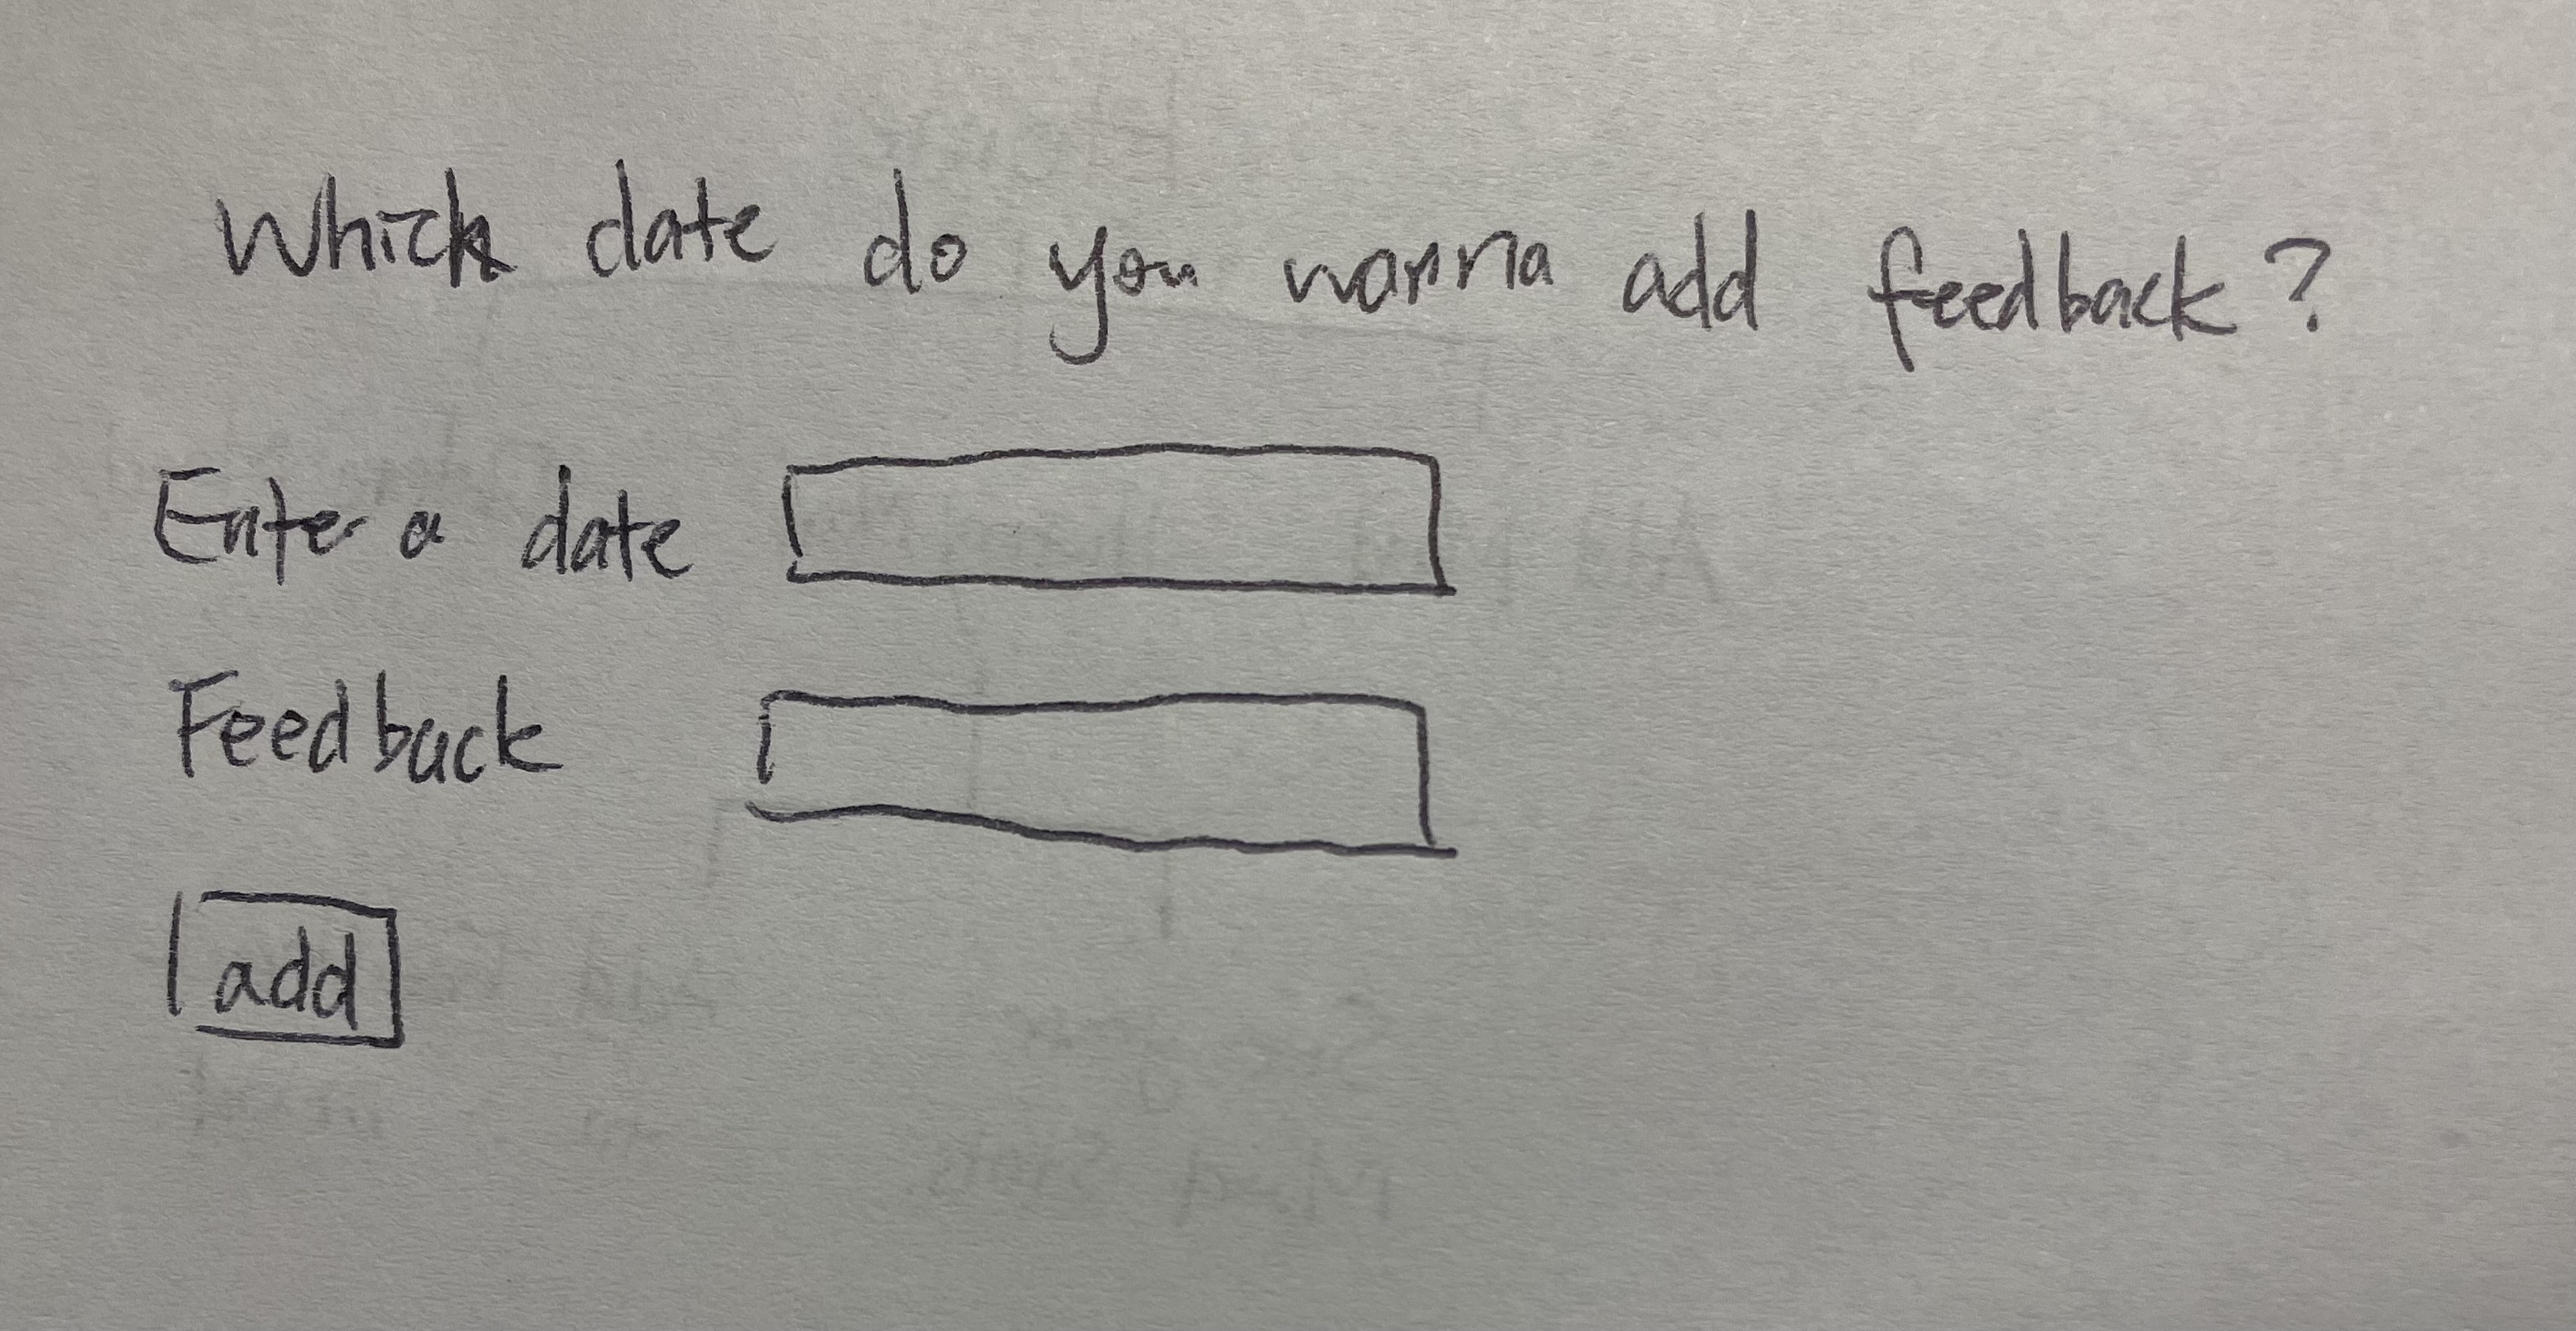 Which date do you wanna add feedback?
Enter a date
Feedback
add